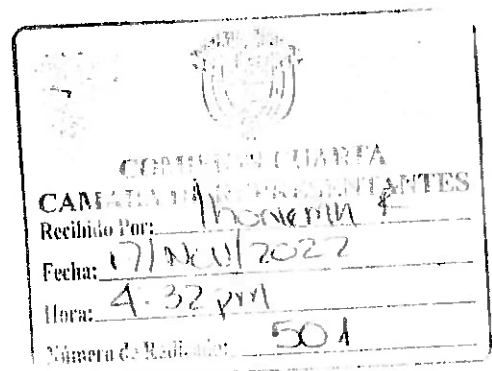 COMISION CUARTA
CAMARA DE REPRESENTANTES
Recibido Por:
Fecha: 17/NOV/2022
Hora: 4.32 pm
Número de Radicado: 501